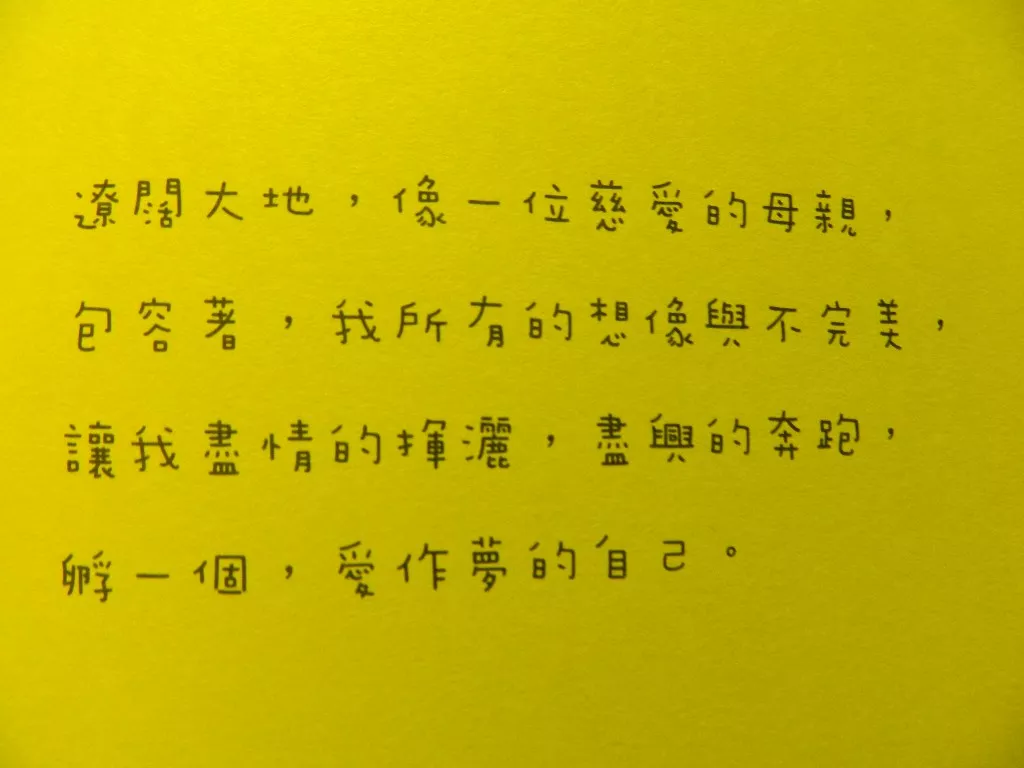 遼闊大地，像一位慈愛的母親，
包容著，我所有的想像與不完美，
讓我盡情的揮灑，盡興的奔跑，
孵一個，愛作夢的自己。